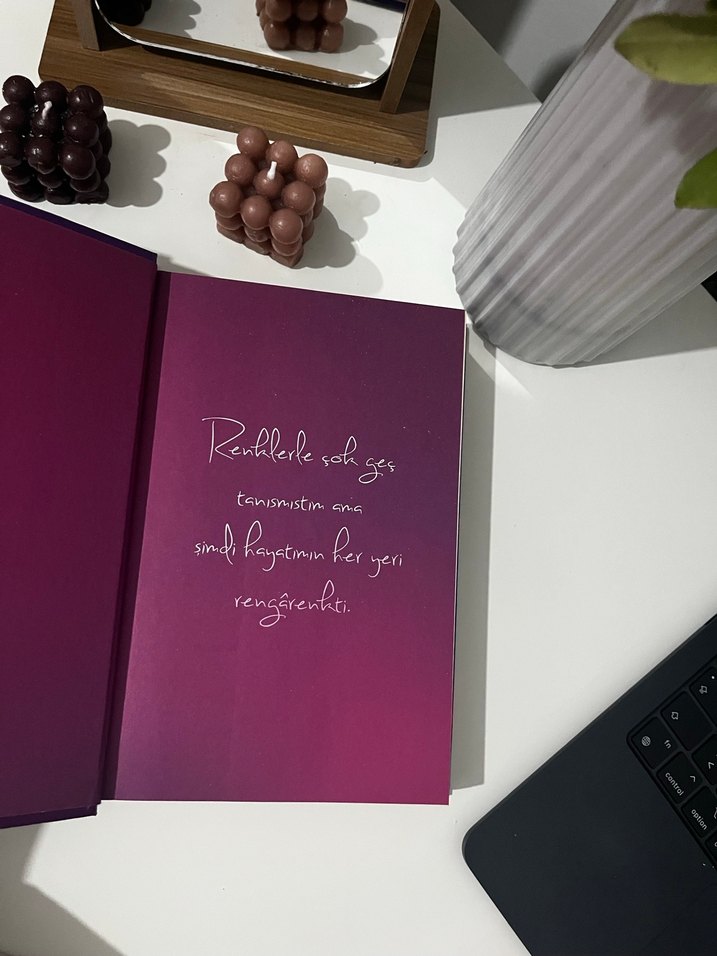 Renklerle çok geç
tanışmıştım ama
şimdi hayatımın her yeri
rengârenkti.
fn
control
option